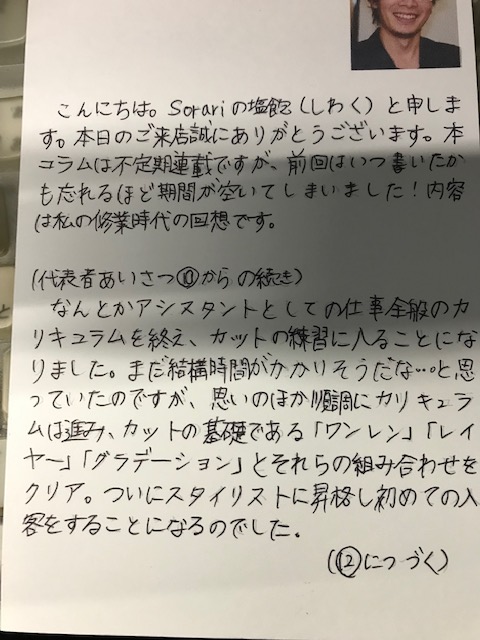 こんにちは。Sorariの塩飽（しわく）と申しま
す。本日のご来店誠にありがとうございます。本
コラムは不定期連載ですが、前回はいつ書いたか
も忘れるほど期間が空いてしまいました！内容
は私の修業時代の回想です。
（代表者あいさつ⑩からの続き）
なんとかアシスタントとしての仕事全般のカ
リキュラムを終え、カットの練習に入ることにな
りました。まだ結構時間がかかりそうだな…。と思
っていたのですが、思いのほか順調にカリキュラ
ムは進み、カットの基礎である「ワンレン」「レイ
ヤー」「グラデーション」とそれらの組み合わせを
クリア。ついにスタイリストに昇格し初めての入
客をすることになるのでした。
（⑫につづく）